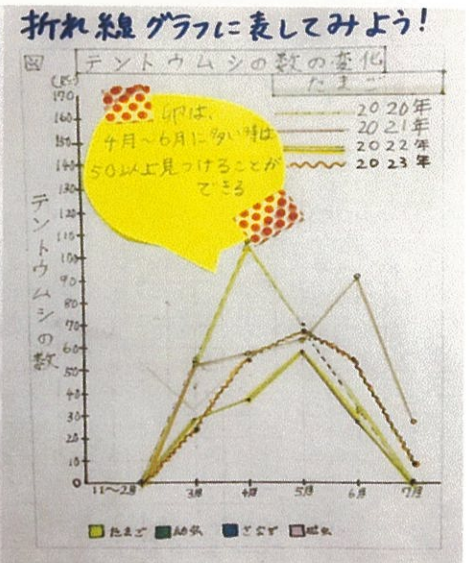 折れ線グラフに表してみよう!
図 テントウムシの数の変化
たまご
(匹)
170
160
150
140
130
120
110
100
90
80
70
60
50
40
30
20
10
0
テントウムシの数
卵は、
4月〜6月に多い時は
50以上見つけることが
できる
2020年
2021年
2022年
2023年
11〜2月 3月 4月 5月 6月 7月
たまご 幼虫 さなぎ 成虫